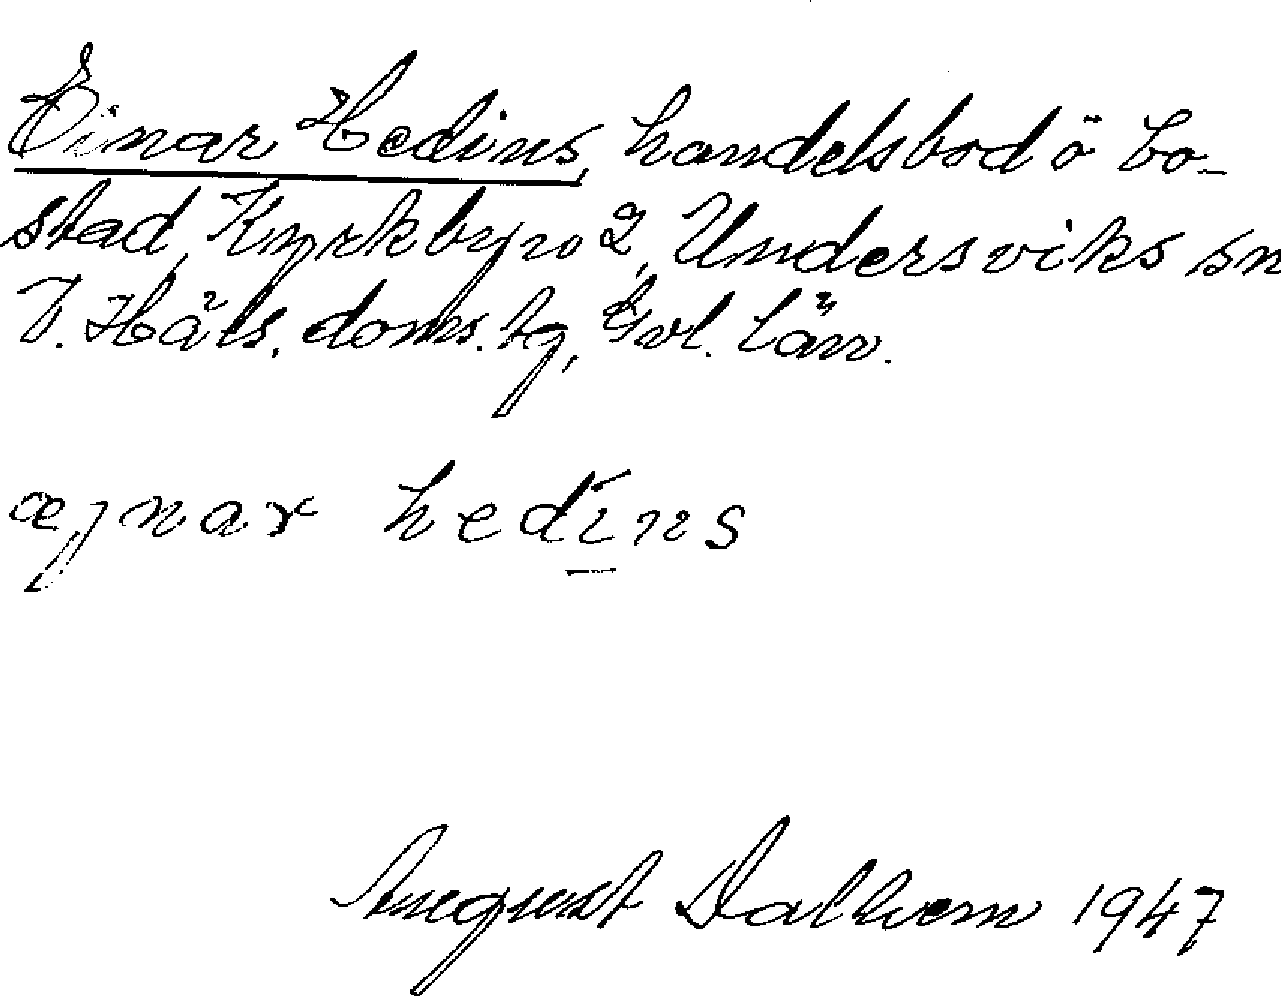 Einar Hedins, handelsbod ö bo-
stad, Kyrkbyn 2, Undersviks sn
V. Häls. doms. tg, Gvl. län.
æjnar hedins
August Dalhem 1947